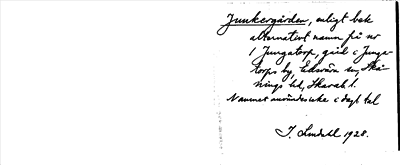 Junkergården, enligt bok
alternativt namn på nr
1 Jungatorp, gård i Junga-
torps by, Edsvära sn, Ska-
nings hd, Skarab. l.
Namnet användes icke i dagl. tal
J. Lindell 1928.